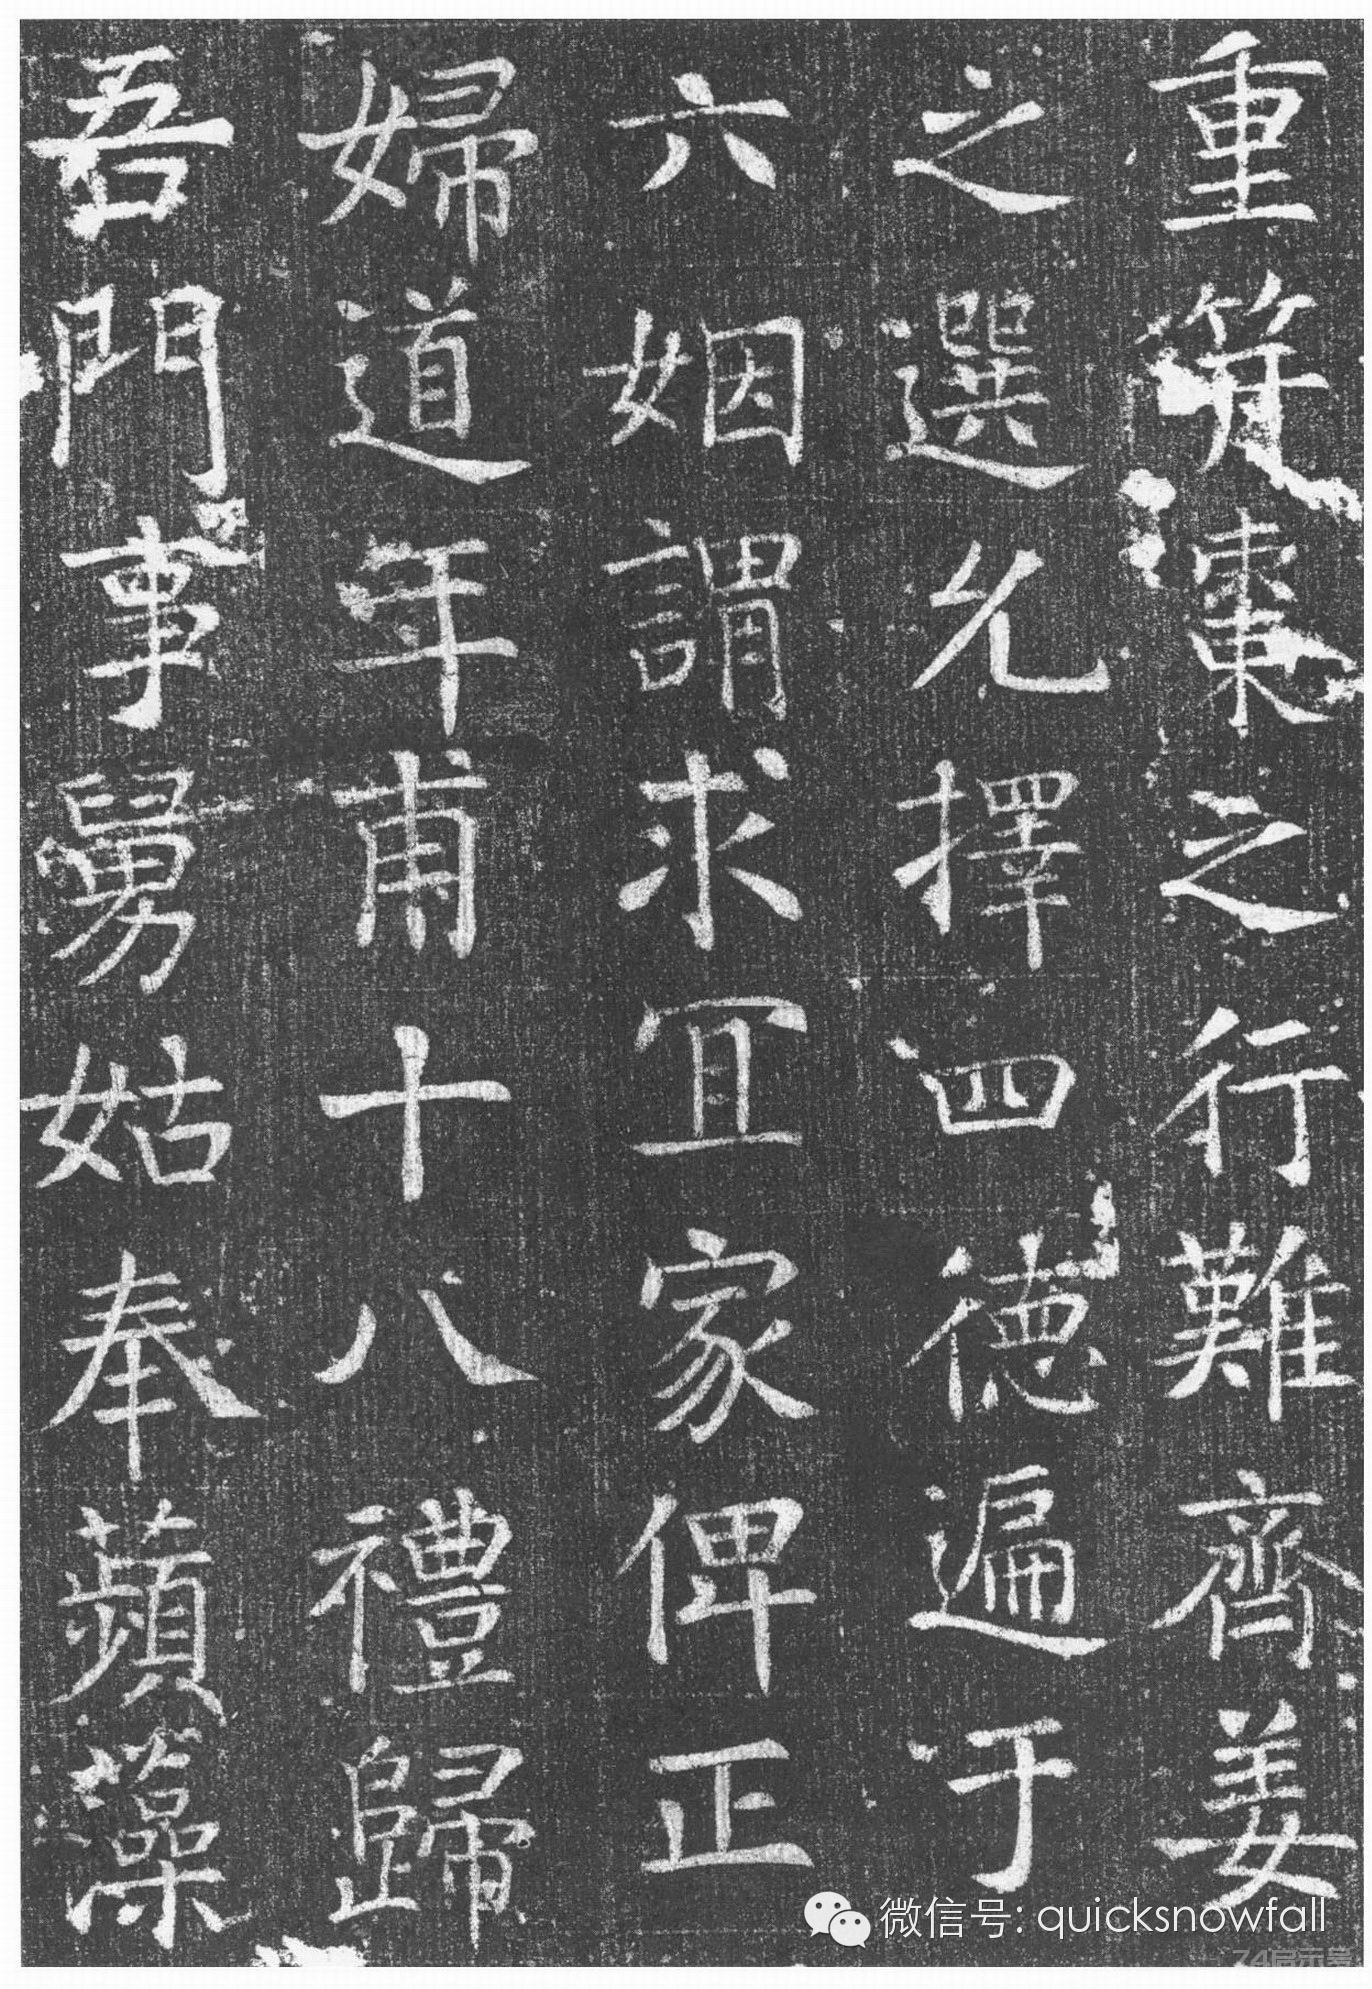 重笄棗之行難齊姜
之選尤擇四德遍于
六姻謂求冝家俾正
婦道年甫十八禮歸
吾門事舅姑奉蘋藻
微信号: quicksnowfall